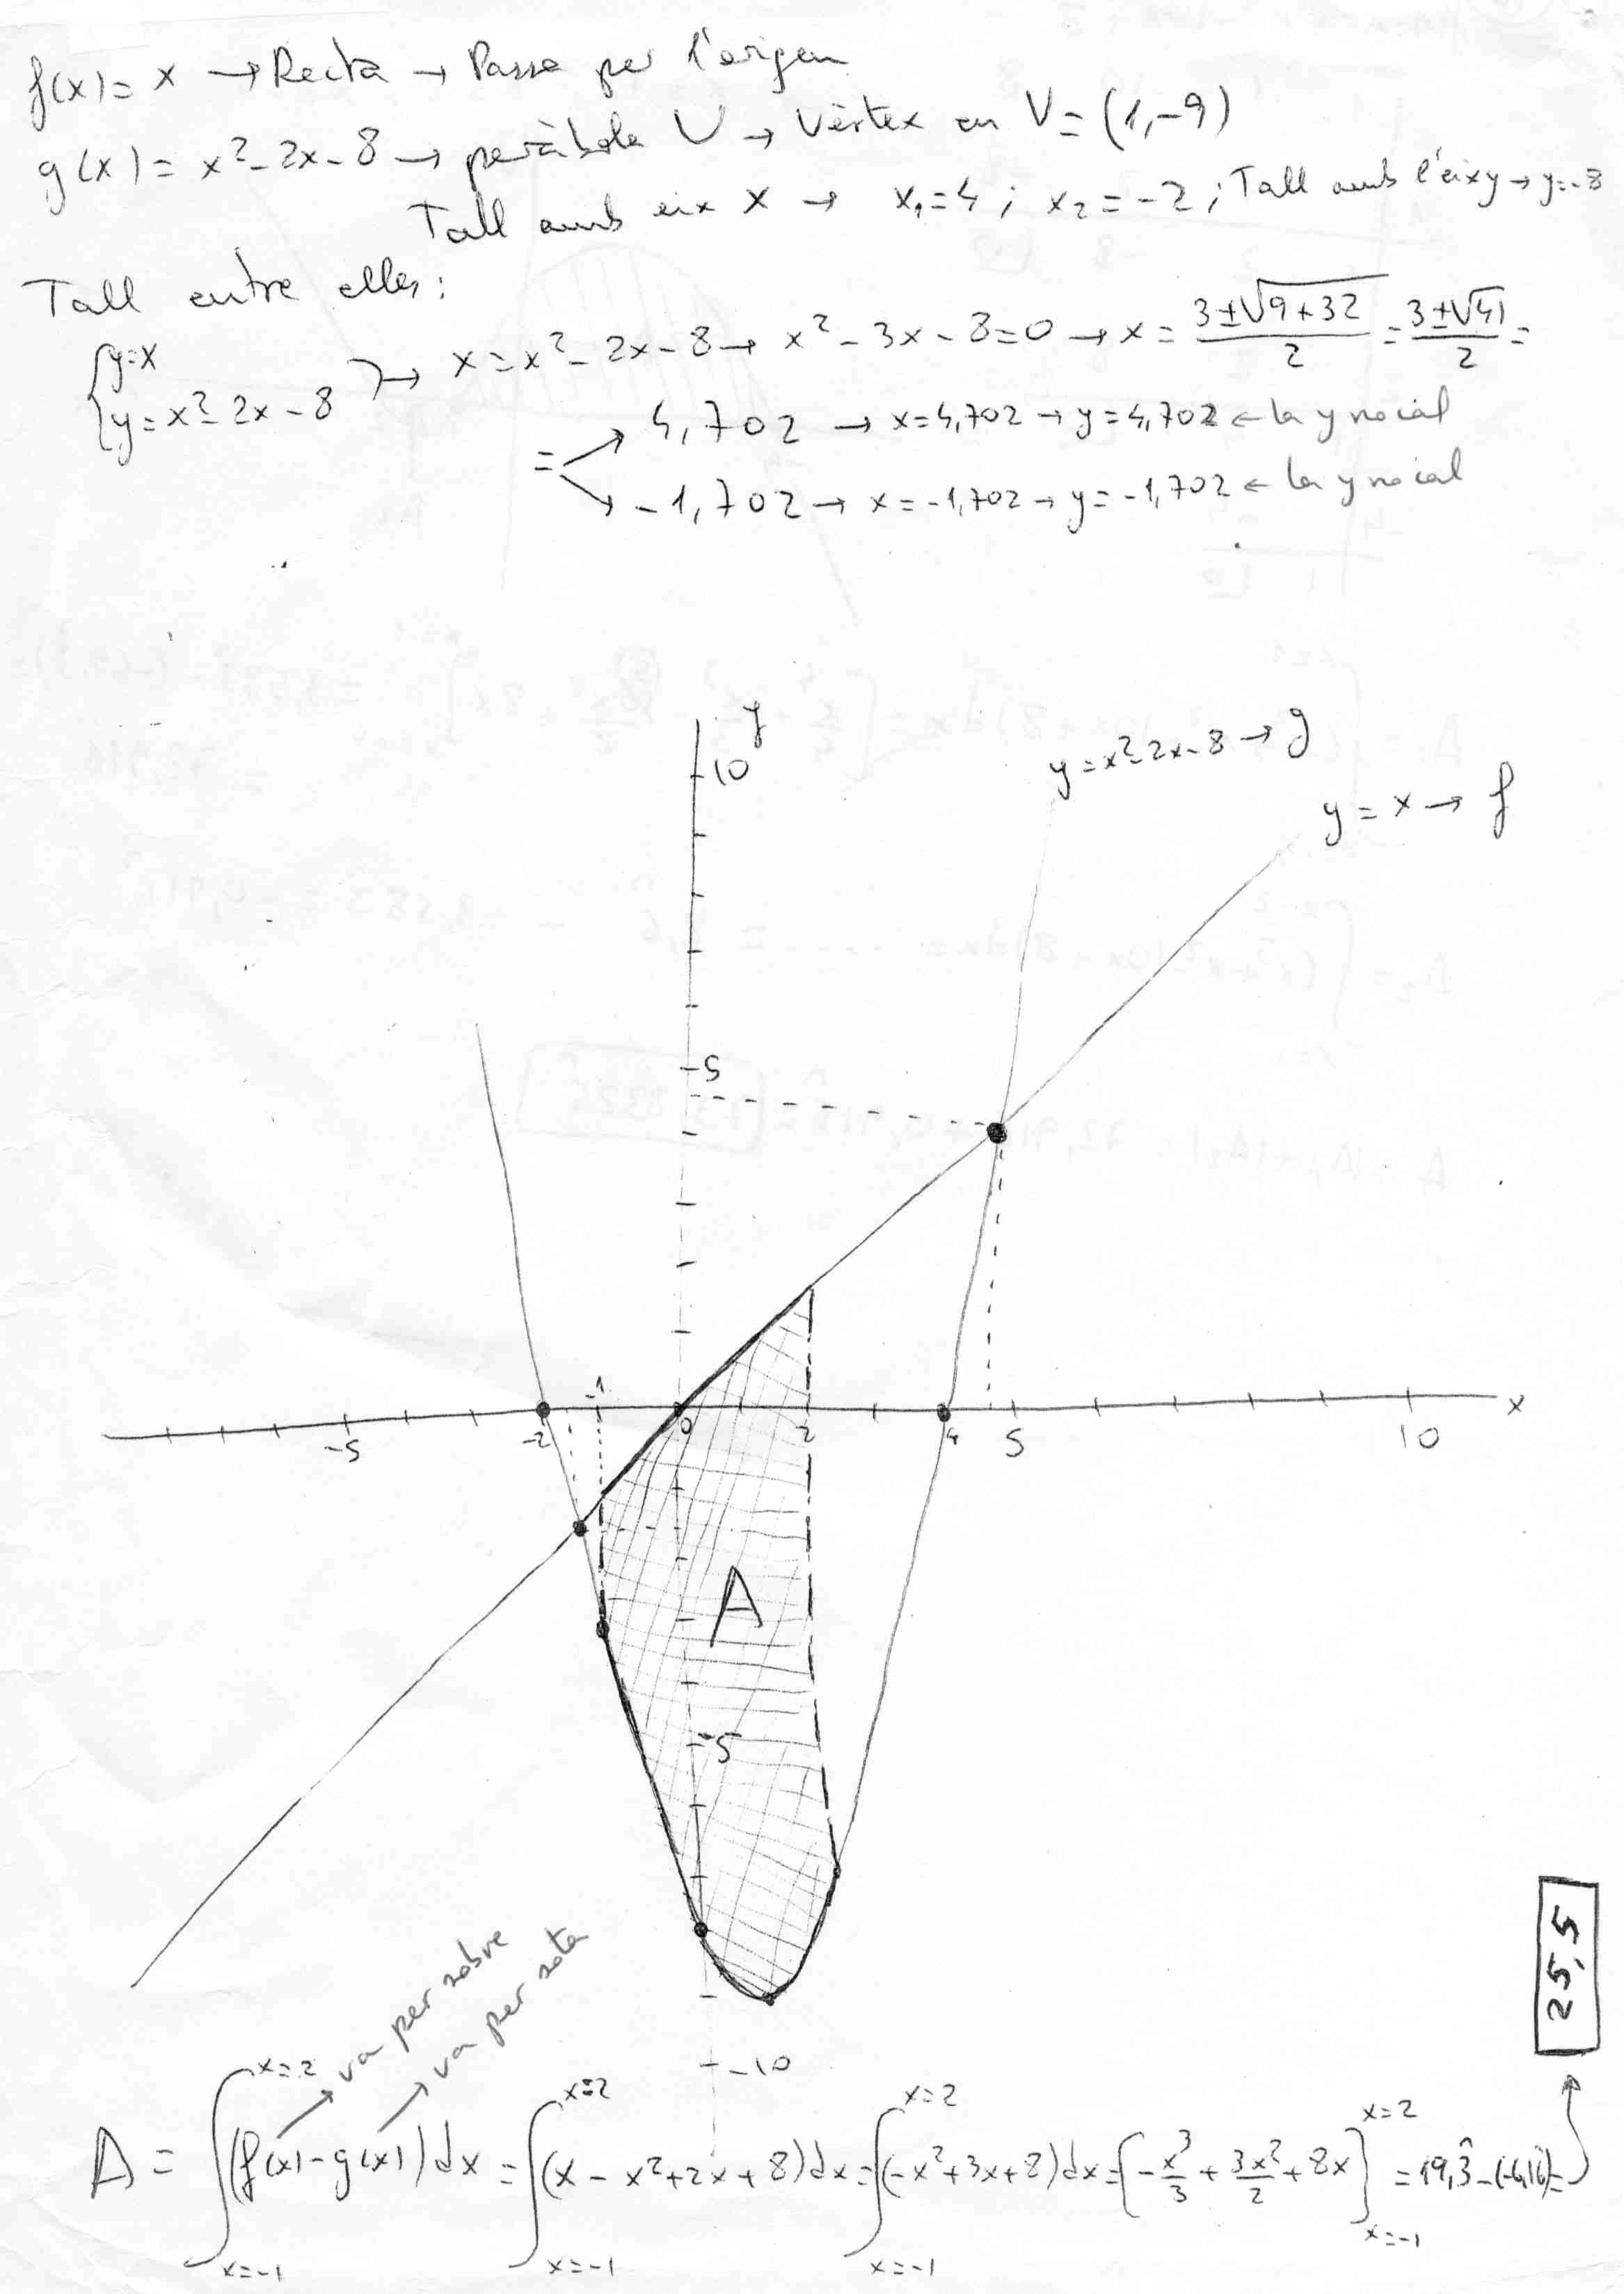 f(x) = x → Recta → Passa per l'origen
g(x) = x² - 2x - 8 → paràbola U → Vèrtex en V = (1, -9)
Tall amb eix X → x₁ = 4 ; x₂ = -2 ; Tall amb l'eix y → y = -8
Tall entre elles:
{ y = x
{ y = x² - 2x - 8 } → x = x² - 2x - 8 → x² - 3x - 8 = 0 → x = (3 ± √(9 + 32))/2 = (3 ± √41)/2 =
= ↗ 4,702 → x = 4,702 → y = 4,702 ← la y no cal
↘ -1,702 → x = -1,702 → y = -1,702 ← la y no cal
y
10
y = x² - 2x - 8 → g
y = x → f
5
A
-1
-5 -2 0 2 4 5 10 x
A
-5
va per sobre
va per sota
25,5
-10
A = ∫_{x=-1}^{x=2} (f(x) - g(x)) dx = ∫_{x=-1}^{x=2} (x - x² + 2x + 8) dx = ∫_{x=-1}^{x=2} (-x² + 3x + 8) dx = [-x³/3 + 3x²/2 + 8x]_{x=-1}^{x=2} = 19,3̂ - (-6,16̂) =